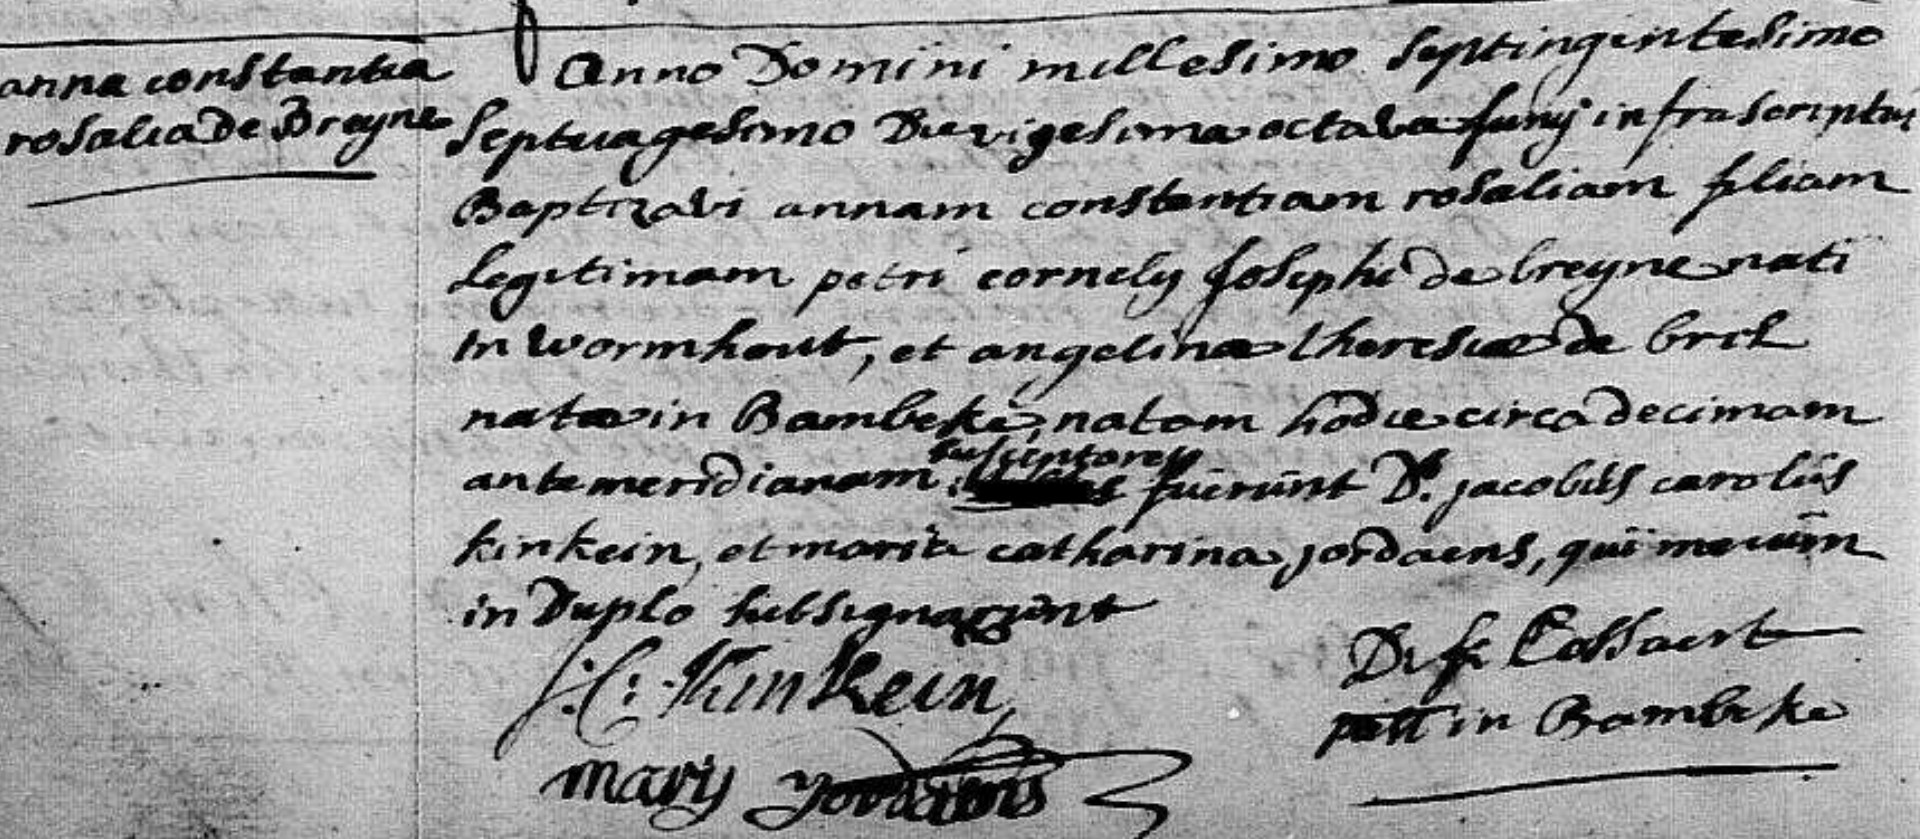 anna constantia
rosalia de Breyne
Anno Domini millesimo septingentesimo
septuagesimo Die vigesima octava Junij infrascriptus
Baptizavi annam constantiam rosaliam filiam
Legitimam petri cornely Josephi de breyne nati
in wormhout, et angelinæ theresiæ de brel
natæ in Bambeke, natam hodie circa decimam
antemeridianam susceptores fuerunt Ds. jacobus carolus
kinkein, et maria catharina jordaens, qui mecum
in Duplo subsignarunt
J: C: Kinkein,
mary yordaens
D. fr. Cossaert
past in Bambeke